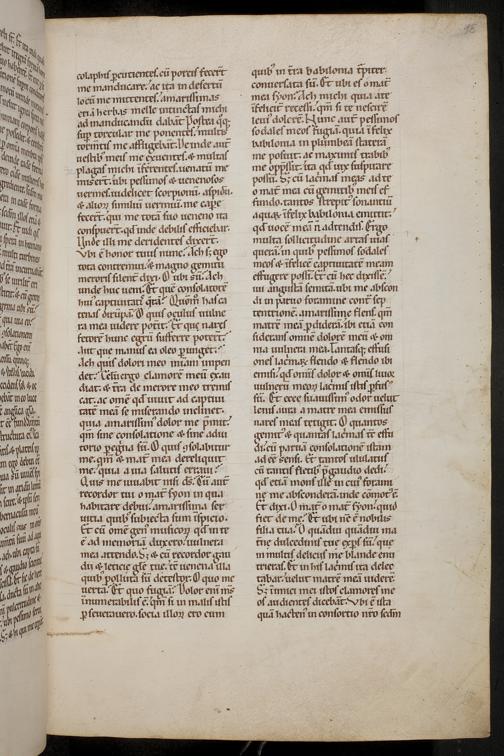 colaphis percutientes. cū porcis fecert
me manducare. ac ita in desertū
locū me mittentes. amarissimas
etiā herbas melle intinctas michi
ad manducandū dabāt. Postea q̄q;
sup torcular me ponentes. multis
tormtis me affligebāt. Deinde aut
vestib; meis me exuentes. & multas
plagas michi īferentes. uenatū me
misert. ibi pessimos & uenenosos
vermes. uidelicet scorpioni. aspidū.
& alioꝝ similiū vermiū. me cape
fecert. qui me totā suo ueneno ita
conspuert. qd inde debilis efficiebar.
Unde illi me deridentes dixert.
Ubi ē honor tuus nunc. Ach &. ego
tota contremui. & magno gemitu
meroris silent dixi. O ubi sū. Ach
unde huc ueni. Et quē consolatorē
hui captiuitat qrā. Quom̄ has ca
tenas dirūpā. O quis oculus uulne
ra mea uidere potit. Et que nares
fetorē hunc egrū sufferre poterēt.
Aut que manus ea oleo pūnget.
Ach quis dolori meo miam impen
det. Celū ergo clamorē meū exau
diat. & tra de merore meo tremis
cat. ac omē qd uiuit ad captiui
tatē meā se miserando inclinet.
quia amarissim dolor me p̄mit.
qm̄ sine consolatione & sine adiu
torio pegna sū. O quis 9solabitur
me. qm̄ & mat mea dereliquit
me. quia a uia salutis erraui.
Quis me iuuabit nisi ds. Cū aut
recordor tui o mat syon in qua
habitare debui. amarissima ser
uitia quib; subiecta sum īspicio.
Et cū omē gen musicorꝝ qd in te
ē ad memoriā duxero. uulnera
mea attendo. S; & cū recordor gau
dii & leticie gle tue. tē uenena illa
quib; polluta sū detestor. O quo me
uertā. Et quo fugiā. Dolor eni m̄s
innumerabilis ē. qm̄ si in malis istis
pseuerauero. socia illoꝝ ero cum
quib; in tra babilonia tpiter
conuersata sū. Et ubi es o mat
mea syon. Ach michi quia a te
īfelicit recessi. qm̄ si te nescirē
leui dolerē. Nunc aut pessimos
sodales meos fugiā. quia īfelix
babilonia in plumbea staterā
me posuit. ac maximis trabib;
me opp̄ssit. ita qd uix suspirare
possū. S; cū lacmas meas ad te
o mat mea cū gemitib; meis ef
fundo. tantos strepit sonantiū
aquaꝝ īfelix babilonia emittit.
qd uocē meā n̄ adtendis. Ergo
multa sollicitudine artas uias
querā. in quib; pessimos sodales
meos & īfelicē captiuitatē meam
effugere possī. Et cū hec dixissē.
in angustā semitā ubi me abscon
di in paruo foramine cont sep
tentrionē. amarissime flens. qm̄
matrē meā pdiderā. ibi etiā con
siderans omnē dolorē meū & om
nia uulnera mea. tantasq; effusi
onē lacmaꝝ flendo & flendo ibi
emisi. qd omis dolor & omis liuor
uulnerū meoꝝ lacmis istis pfusi
sū. Et ecce suauissim odor uelut
lenis aura a matre mea emissus
nares meas tetigit. O quantos
gemit & quantas lacmas tē effu
di. cū partiā consolationē illam
adeē sensi. Et tantos ululatus
cū tantis fletib; pgaudio dedi.
qd etiā mons ille in cui foramī
ne me absconderā. inde cōmot ē.
Et dixi. O mat o mat syon. quid
fiet de me. Et ubi nc ē nobilis
filia tua. O quādiu quādiu ma
tnē dulcedinis tue expes sū. que
in multis deliciis me blande enu
trieras. Et in his lacmis ita delec
tabar. uelut matrē meā uiderē.
S; inimici mei istos clamores me
os audientes dicebāt. Ubi ē ista
quā hacten in consortio nro scdm